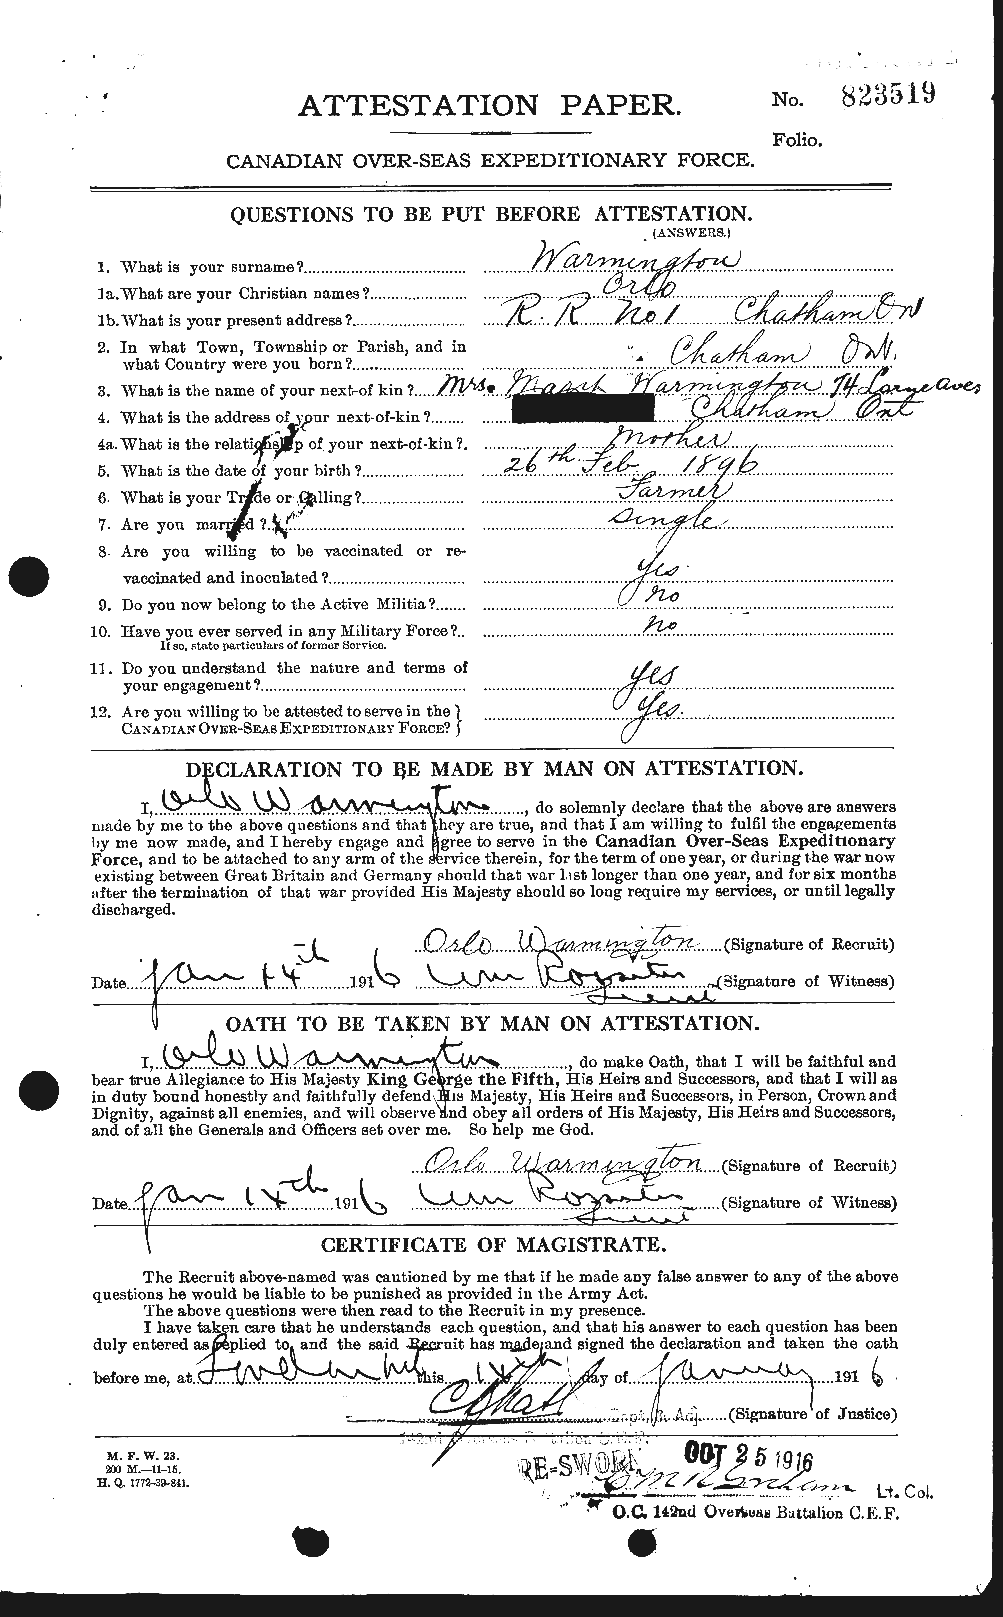 ATTESTATION PAPER.
No. 823519
Folio.
CANADIAN OVER-SEAS EXPEDITIONARY FORCE.
QUESTIONS TO BE PUT BEFORE ATTESTATION.
(ANSWERS.)
1. What is your surname?
Warmington
1a. What are your Christian names?
Orlo
1b. What is your present address?
R. R No 1 Chatham Ont
2. In what Town, Township or Parish, and in
what Country were you born?
Chatham Ont.
3. What is the name of your next-of kin?
Mrs. Warmington, 74 Aves
4. What is the address of your next-of-kin?
Chatham Ont
4a. What is the relationship of your next-of-kin?
Mother
5. What is the date of your birth?
26th Feb 1896
6. What is your Trade or Calling?
Farmer
7. Are you married?
Single
8. Are you willing to be vaccinated or re-
vaccinated and inoculated?
Yes.
9. Do you now belong to the Active Militia?
No
10. Have you ever served in any Military Force?
No
If so, state particulars of former Service.
11. Do you understand the nature and terms of
your engagement?
Yes
12. Are you willing to be attested to serve in the
CANADIAN OVER-SEAS EXPEDITIONARY FORCE?
Yes.
DECLARATION TO BE MADE BY MAN ON ATTESTATION.
I, Orlo Warmington, do solemnly declare that the above are answers
made by me to the above questions and that they are true, and that I am willing to fulfil the engagements
by me now made, and I hereby engage and agree to serve in the Canadian Over-Seas Expeditionary
Force, and to be attached to any arm of the service therein, for the term of one year, or during the war now
existing between Great Britain and Germany should that war last longer than one year, and for six months
after the termination of that war provided His Majesty should so long require my services, or until legally
discharged.
Orlo Warmington (Signature of Recruit)
Date Jan 14th 1916 Wm (Signature of Witness)
Lieut
OATH TO BE TAKEN BY MAN ON ATTESTATION.
I, Orlo Warmington, do make Oath, that I will be faithful and
bear true Allegiance to His Majesty King George the Fifth, His Heirs and Successors, and that I will as
in duty bound honestly and faithfully defend His Majesty, His Heirs and Successors, in Person, Crown and
Dignity, against all enemies, and will observe and obey all orders of His Majesty, His Heirs and Successors,
and of all the Generals and Officers set over me. So help me God.
Orlo Warmington (Signature of Recruit)
Date Jan 14th 1916 Wm (Signature of Witness)
Lieut
CERTIFICATE OF MAGISTRATE.
The Recruit above-named was cautioned by me that if he made any false answer to any of the above
questions he would be liable to be punished as provided in the Army Act.
The above questions were then read to the Recruit in my presence.
I have taken care that he understands each question, and that his answer to each question has been
duly entered as replied to, and the said Recruit has made and signed the declaration and taken the oath
before me, at London Ont this 14th day of January 1916
Capt. & Adj. (Signature of Justice)
M. F. W. 23.
200 M.—11-15.
H. Q. 1772-39-841.
RE-SWORN OCT 25 1916
Lt. Col.
O.C. 142nd Overseas Battalion C.E.F.